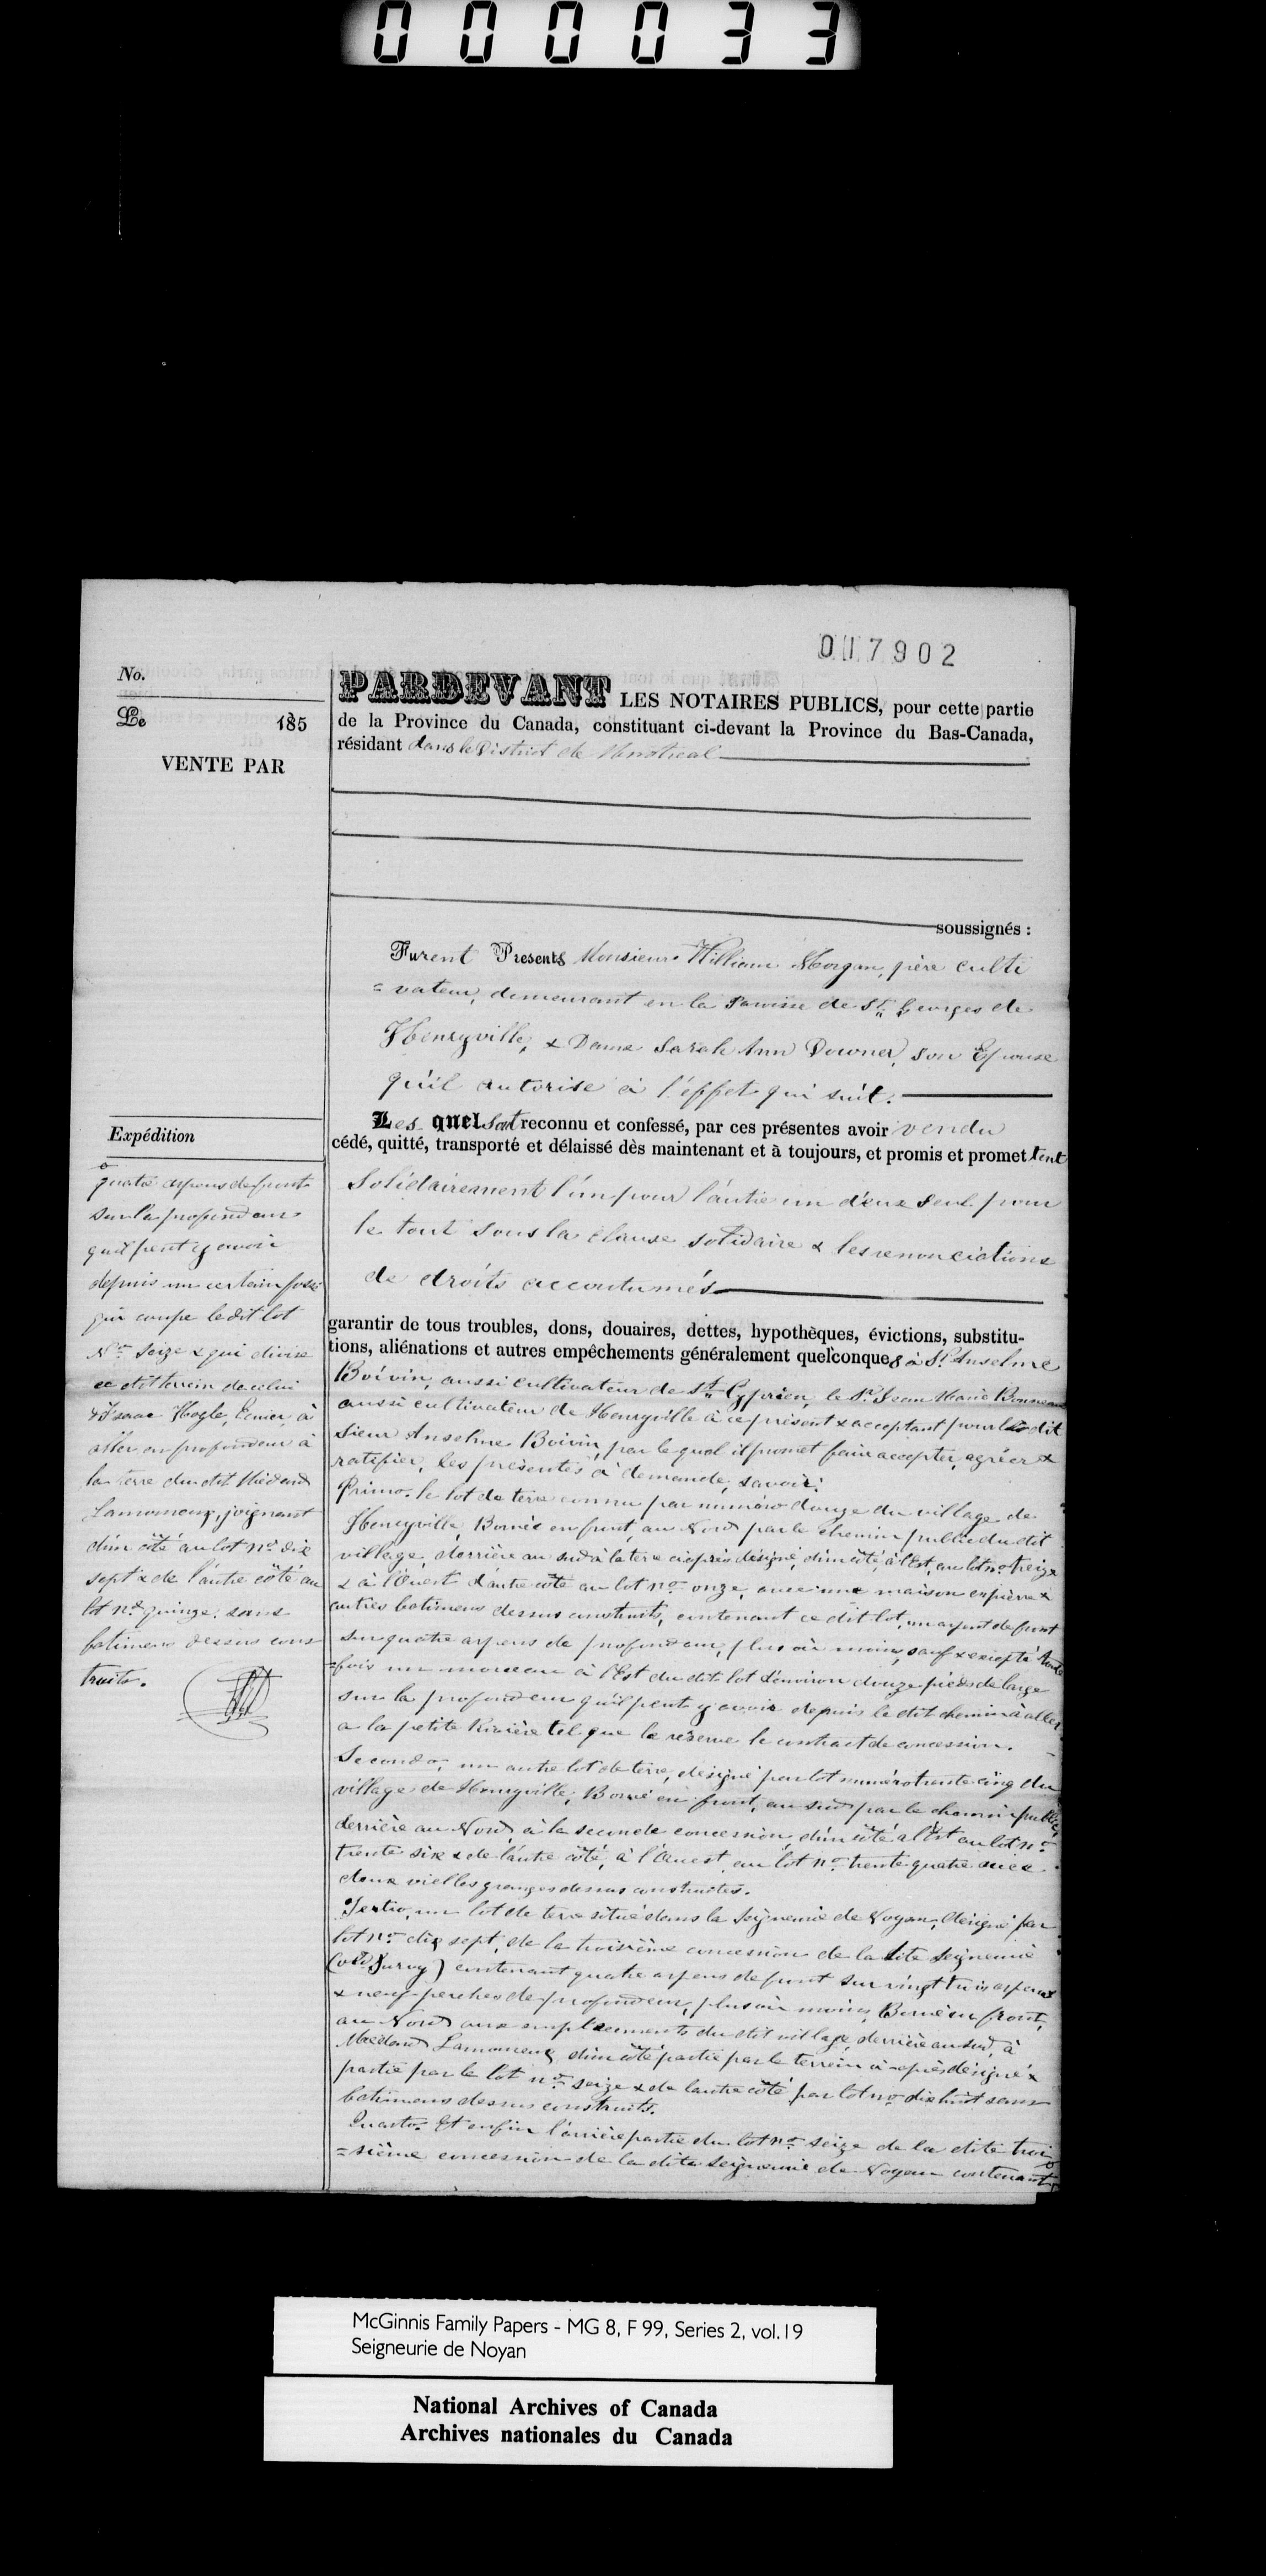 000033
017902
No.
Le 185
VENTE PAR
PARDEVANT LES NOTAIRES PUBLICS, pour cette partie
de la Province du Canada, constituant ci-devant la Province du Bas-Canada,
résidant dans le District de Montreal
soussignés :
Furent Presents Monsieur William Morgan, père culti
=vateur, demeurant en la Paroisse de St. Georges de
Henryville, & Dame Sarah Ann Downer, son Epouse
qu'il autorise à l'effet qui suit.
Les quels ont reconnu et confessé, par ces présentes avoir vendu
cédé, quitté, transporté et délaissé dès maintenant et à toujours, et promis et promettent
Solidairement l'un pour l'autre un d'eux seul pour
le tout sous la clause solidaire & les renonciations
de droits accoutumés
garantir de tous troubles, dons, douaires, dettes, hypothèques, évictions, substitu-
tions, aliénations et autres empêchements généralement quelconques à Sr. Anselme
Boivin, aussi cultivateur de St. Cyprien, le Sr. Jean Marie
aussi cultivateur de Henryville à ce présent & acceptant pour le dit
Sieur Anselme Boivin, par lequel il promet faire accepter, agréer &
ratifier, les présentes à demande, savoir:
Primo. le lot de terre connu par numéro douze du village de
Henryville, Borné en front, au Nord par le chemin public du dit
village, derrière au sud à la terre ciaprès désigné, d'un côté, à l'Est, au lot no. treize
& à l'Ouest d'autre côté au lot no. onze, avec une maison en pierre &
autres batimens dessus construits, contenant ce dit lot, un arpent de front
sur quatre arpens de profondeur, plus où moins, sauf & excepté toute
=fois un morceau à l'Est du dit lot d'environ douze pieds de large
sur la profondeur qu'il peut y avoir depuis le dit chemin à aller
a la petite Rivière tel que le réserve le contract de concession.
Secondo, un autre lot de terre, désigné par lot numéro trente cinq du
village de Henryville, Borné en front, au sud par le chemin public,
derrière au Nord, à la seconde concession, d'un côté à l'Est au lot no.
trente six & de l'autre côté, à l'Ouest au lot no. trente quatre avec
deux vielles granges dessus construites.
Tertio, un lot de terre situé dans la Seigneurie de Noyan, désigné par
lot no. dix sept, de la troisième concession de la dite Seigneurie
(old Survey) contenant quatre arpens de front sur vingt trois arpens
& neuf perches de profondeur, plus où moins, Borné en front,
au Nord aux emplacements du dit village, derrière au sud, à
Médard Lamoureux, d'un côté partie par le terrein ci-après désigné &
partie par le lot no. seize & de l'autre côté par lot no. dix huit sans
batimens dessus construits.
Quarto. Et enfin l'arrière partie du lot no. seize de la dite troi
=sième concession de la dite Seigneurie de Noyan contenant
Expédition
quatre arpens de front
sur la profondeur
qu'il peut y avoir
depuis un certain fossé
qui coupe le dit lot
No. Seize & qui divise
ce dit terrein de celui
d'Isaac Hogle, Ecuier, à
aller en profondeur à
la terre du dit Médard
Lamoureux, joignant
d'un côté au lot no. dix
sept & de l'autre côté au
lot no. quinze, sans
batimens dessus cons
truits.
McGinnis Family Papers - MG 8, F 99, Series 2, vol.19
Seigneurie de Noyan
National Archives of Canada
Archives nationales du Canada